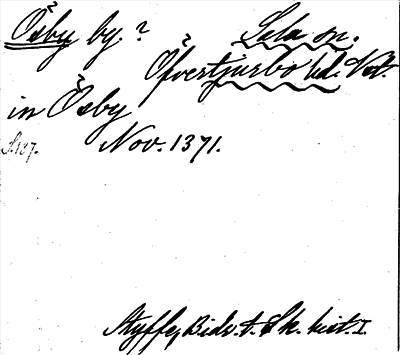 Ösby by. ? Sala sn.
Öfvertjurbo hd. Vstm.
in Ösby
S. 137. Nov. 1371.
Styffe, Bidr. t. Sk. hist. I.